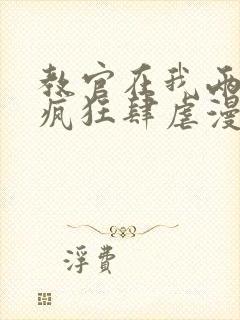 教官在我两
疯狂肆虐漫
浮费